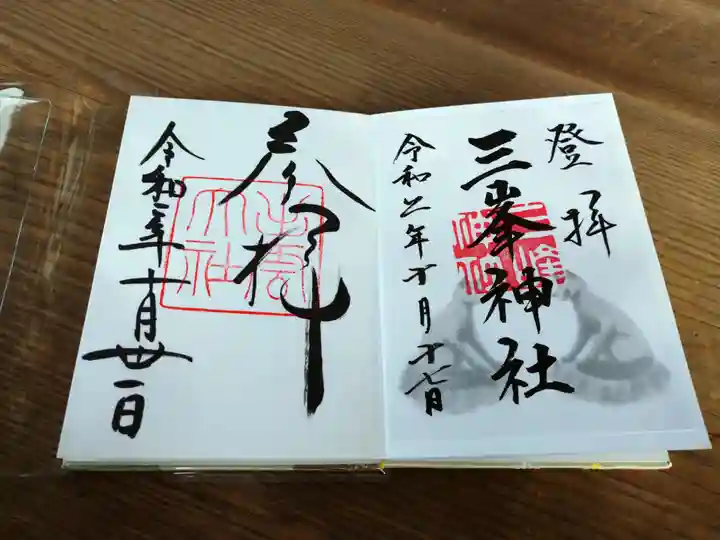 登拝
三峯神社
令和二年十月十七日
参拝
令和二年十月丗一日